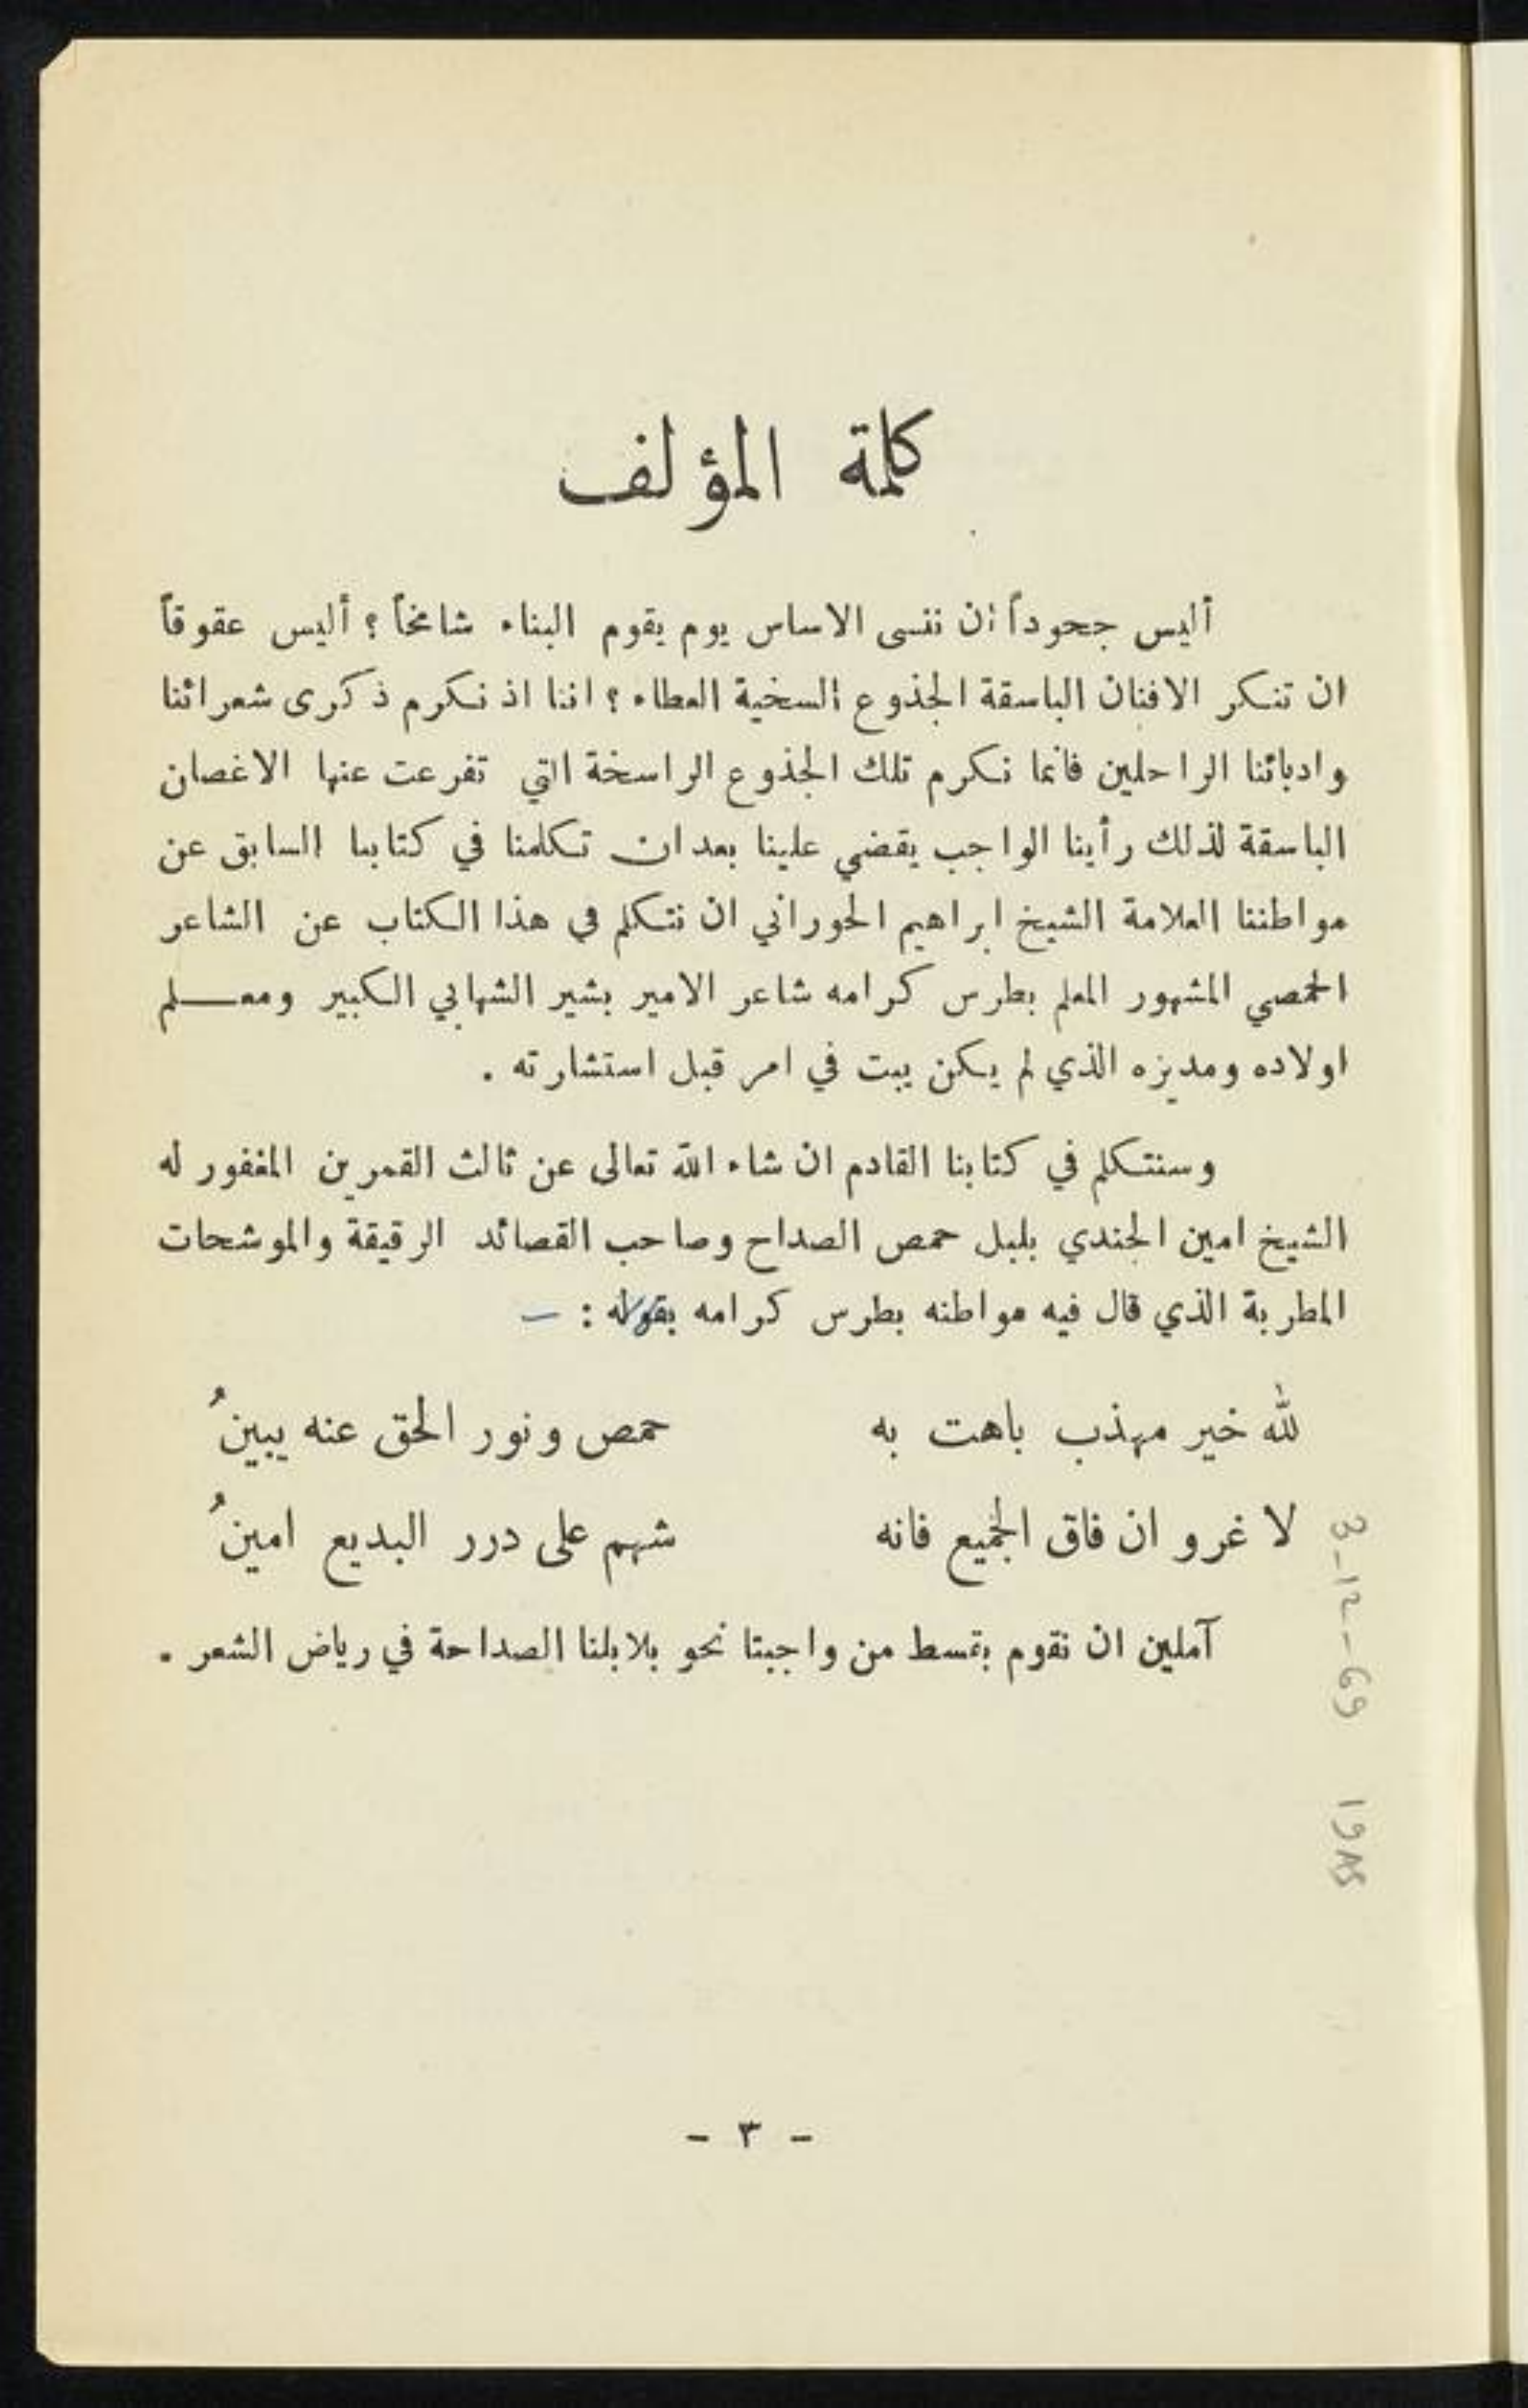 كلمة المؤلف
أليس جحوداً ان ننسى الاساس يوم يقوم البناء شامخاً ؟ أليس عقوقاً
ان تنكر الافنان الباسقة الجذوع السخية العطاء ؟ اننا اذ نكرم ذكرى شعرائنا
وادبائنا الراحلين فانما نكرم تلك الجذوع الراسخة التي تفرعت عنها الاغصان
الباسقة لذلك رأينا الواجب يقضي علينا بعد ان تكلمنا في كتابنا السابق عن
مواطننا العلامة الشيخ ابراهيم الحوراني ان نتكلم في هذا الكتاب عن الشاعر
الحمصي المشهور المعلم بطرس كرامه شاعر الامير بشير الشهابي الكبير ومعلم
اولاده ومديره الذي لم يكن يبت في امر قبل استشارته .
وسنتكلم في كتابنا القادم ان شاء الله تعالى عن ثالث القمرين المغفور له
الشيخ امين الجندي بلبل حمص الصداح وصاحب القصائد الرقيقة والموشحات
المطربة الذي قال فيه مواطنه بطرس كرامه بقوله : —
لله خير مهذب باهت به حمص ونور الحق عنه يبينُ
لا غرو ان فاق الجميع فانه شهم على درر البديع امينُ
آملين ان نقوم بقسط من واجبتا نحو بلابلنا الصداحة في رياض الشعر .
3-12-69
- ٣ -